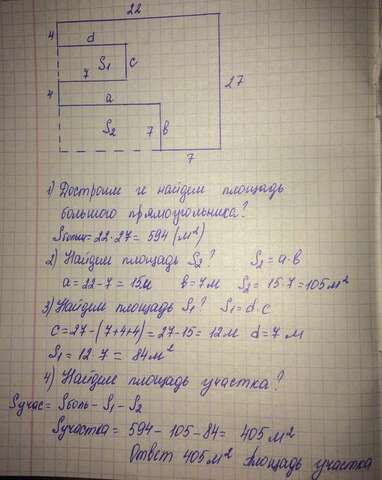 22
4
d
S₁
c
7
27
4
a
S₂
7
в
7
1) Достроим и найдем площадь
большого прямоугольника?
Sбольш=22·27=594 (м²)
2) Найдем площадь S₂? S₂=a·в
a=22-7=15м в=7м S₂=15·7=105м²
3) Найдем площадь S₁? S₁=d·c
c=27-(7+4+4)=27-15=12м d=7м
S₁=12·7=84м²
4) Найдем площадь участка?
Sучас=Sболь-S₁-S₂
Sучастка=594-105-84=405м²
Ответ 405м² площадь участка